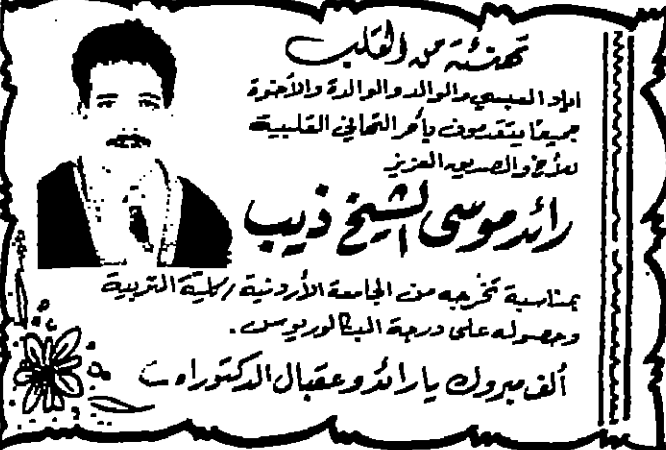 تهنئة من القلب
اياد العبسي والوالد والوالدة والأخوة
جميعاً يتقدمون بأحر التهاني القلبية
للأخ والصديق العزيز
رائد موسى الشيخ ذيب
بمناسبة تخرجه من الجامعة الأردنية / كلية التربية
وحصوله على درجة البكالوريوس.
ألف مبروك يا رائد وعقبال الدكتوراه